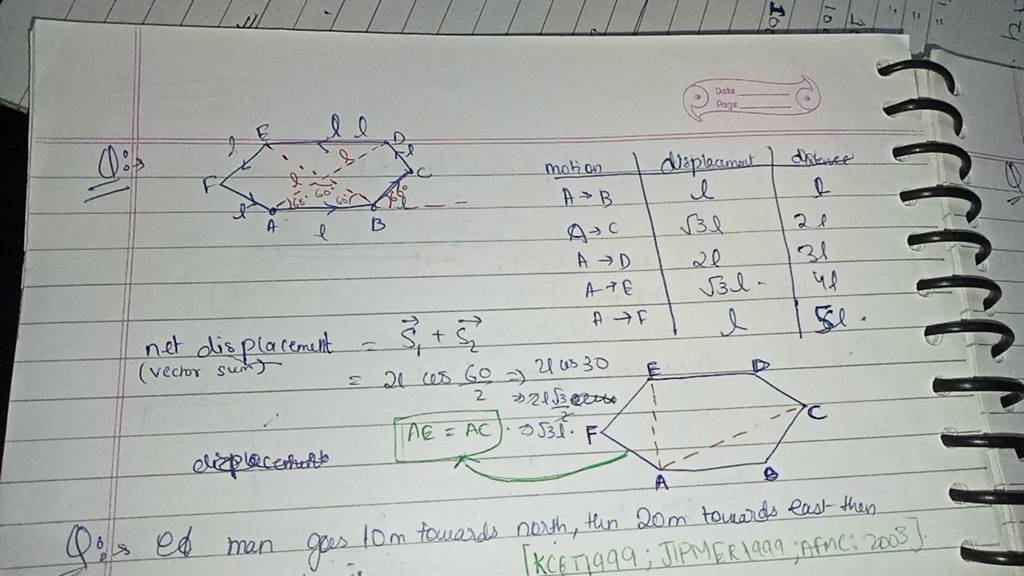 Date
Page
Q:→
E l l D
l l l
F C
l 60° 60° 60° 60° l
A l B
motion displacement distance
A → B l l
A → C √3l 2l
A → D 2l 3l
A → E √3l 4l
A → F l 5l
net displacement = S₁ + S₂
(vector sum)
= 2l cos 60/2 ⇒ 2l cos 30
⇒ 2l √3/2
AE = AC ⇒ √3l
E D
F C
A B
displacement
Q:→ man goes 10m towards north, then 20m towards east then
[KCET1999; JIPMER1999; AFMC: 2003].